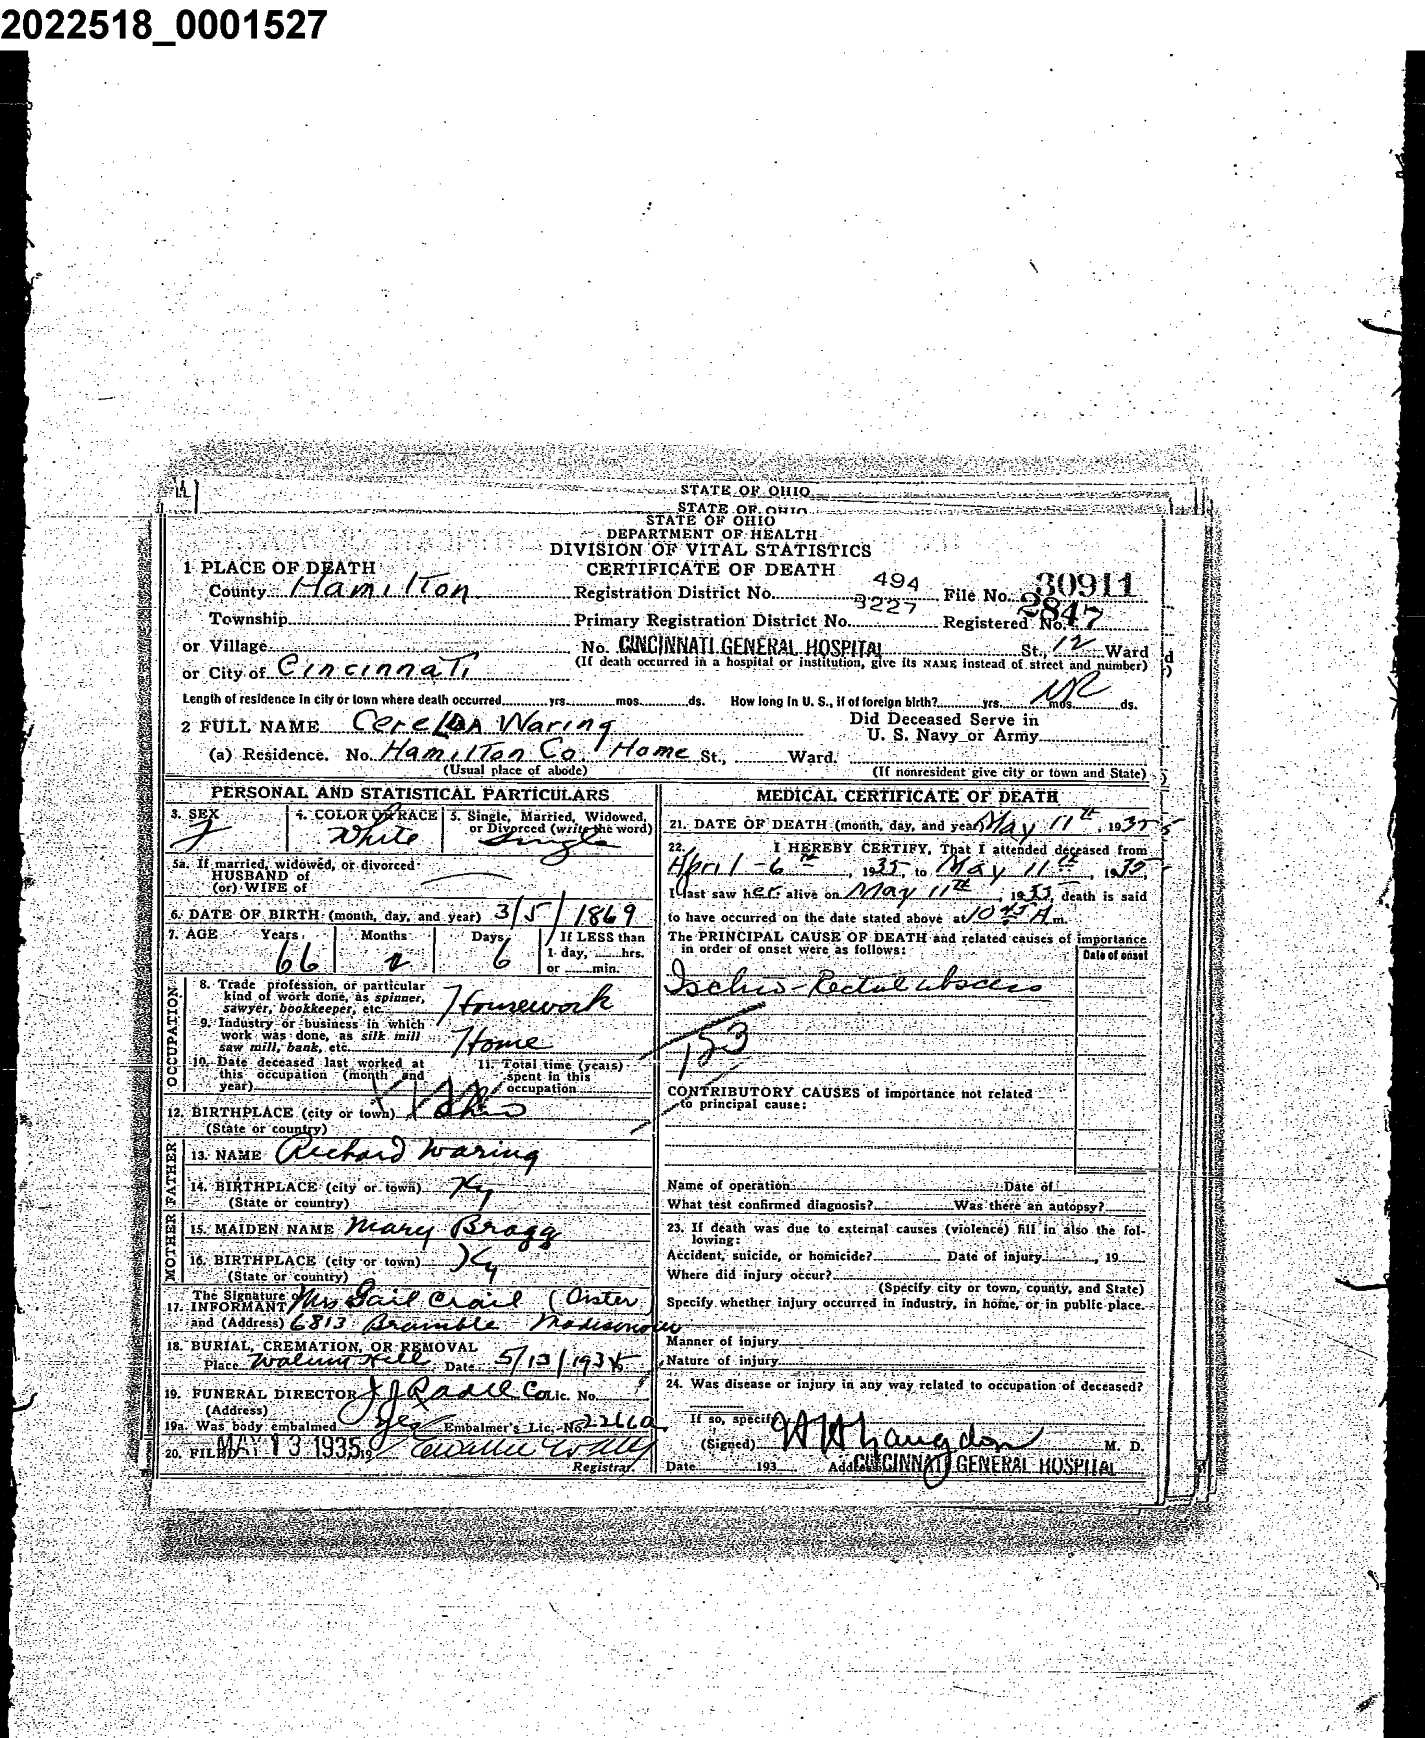 2022518_0001527
STATE OF OHIO
STATE OF OHIO
STATE OF OHIO
DEPARTMENT OF HEALTH
DIVISION OF VITAL STATISTICS
CERTIFICATE OF DEATH
1 PLACE OF DEATH
County Hamilton Registration District No. 494 File No. 30911
Township Primary Registration District No. 3227 Registered No. 2847
or Village No. CINCINNATI GENERAL HOSPITAL St., 12 Ward
or City of Cincinnati (If death occurred in a hospital or institution, give its NAME instead of street and number)
Length of residence in city or town where death occurred yrs. mos. ds. How long in U. S., if of foreign birth? yrs. mos. ds.
2 FULL NAME Cerelda Waring Did Deceased Serve in
U. S. Navy or Army
(a) Residence. No. Hamilton Co. Home St., Ward.
(Usual place of abode) (If nonresident give city or town and State)
PERSONAL AND STATISTICAL PARTICULARS
3. SEX F 4. COLOR OR RACE White 5. Single, Married, Widowed,
or Divorced (write the word) Single
5a. If married, widowed, or divorced
HUSBAND of
(or) WIFE of
6. DATE OF BIRTH (month, day, and year) 3/5/1869
7. AGE Years 66 Months 2 Days 6 If LESS than
1 day, hrs.
or min.
OCCUPATION
8. Trade, profession, or particular
kind of work done, as spinner,
sawyer, bookkeeper, etc. Housework
9. Industry or business in which
work was done, as silk mill
saw mill, bank, etc. Home
10. Date deceased last worked at
this occupation (month and
year)
11. Total time (years)
spent in this
occupation
12. BIRTHPLACE (city or town) Ohio
(State or country)
FATHER
13. NAME Richard Waring
14. BIRTHPLACE (city or town) Ky
(State or country)
MOTHER
15. MAIDEN NAME Mary Bragg
16. BIRTHPLACE (city or town) Ky
(State or country)
The Signature of
17. INFORMANT Mrs Gail Crail
and (Address) 6813 Bramble Madisonville
18. BURIAL, CREMATION, OR REMOVAL
Place Walnut Hill Date 5/13/1935
19. FUNERAL DIRECTOR Co. Lic. No.
(Address)
19a. Was body embalmed Yes Embalmer's Lic. No. 2266a
20. FILED MAY 13 1935 19
Registrar.
MEDICAL CERTIFICATE OF DEATH
21. DATE OF DEATH (month, day, and year) May 11th, 1935
22. I HEREBY CERTIFY, That I attended deceased from
April 6th, 1935, to May 11th, 1935
I last saw her alive on May 11th, 1935, death is said
to have occurred on the date stated above at 10 45 A m.
The PRINCIPAL CAUSE OF DEATH and related causes of importance
in order of onset were as follows:
Date of onset
Ischio-Rectal abscess
153
CONTRIBUTORY CAUSES of importance not related
to principal cause:
Name of operation Date of
What test confirmed diagnosis? Was there an autopsy?
23. If death was due to external causes (violence) fill in also the fol-
lowing:
Accident, suicide, or homicide? Date of injury , 19
Where did injury occur?
(Specify city or town, county, and State)
Specify whether injury occurred in industry, in home, or in public place.
Manner of injury
Nature of injury
24. Was disease or injury in any way related to occupation of deceased?
If so, specify
(Signed) H H Langdon M. D.
Date 193 Address CINCINNATI GENERAL HOSPITAL